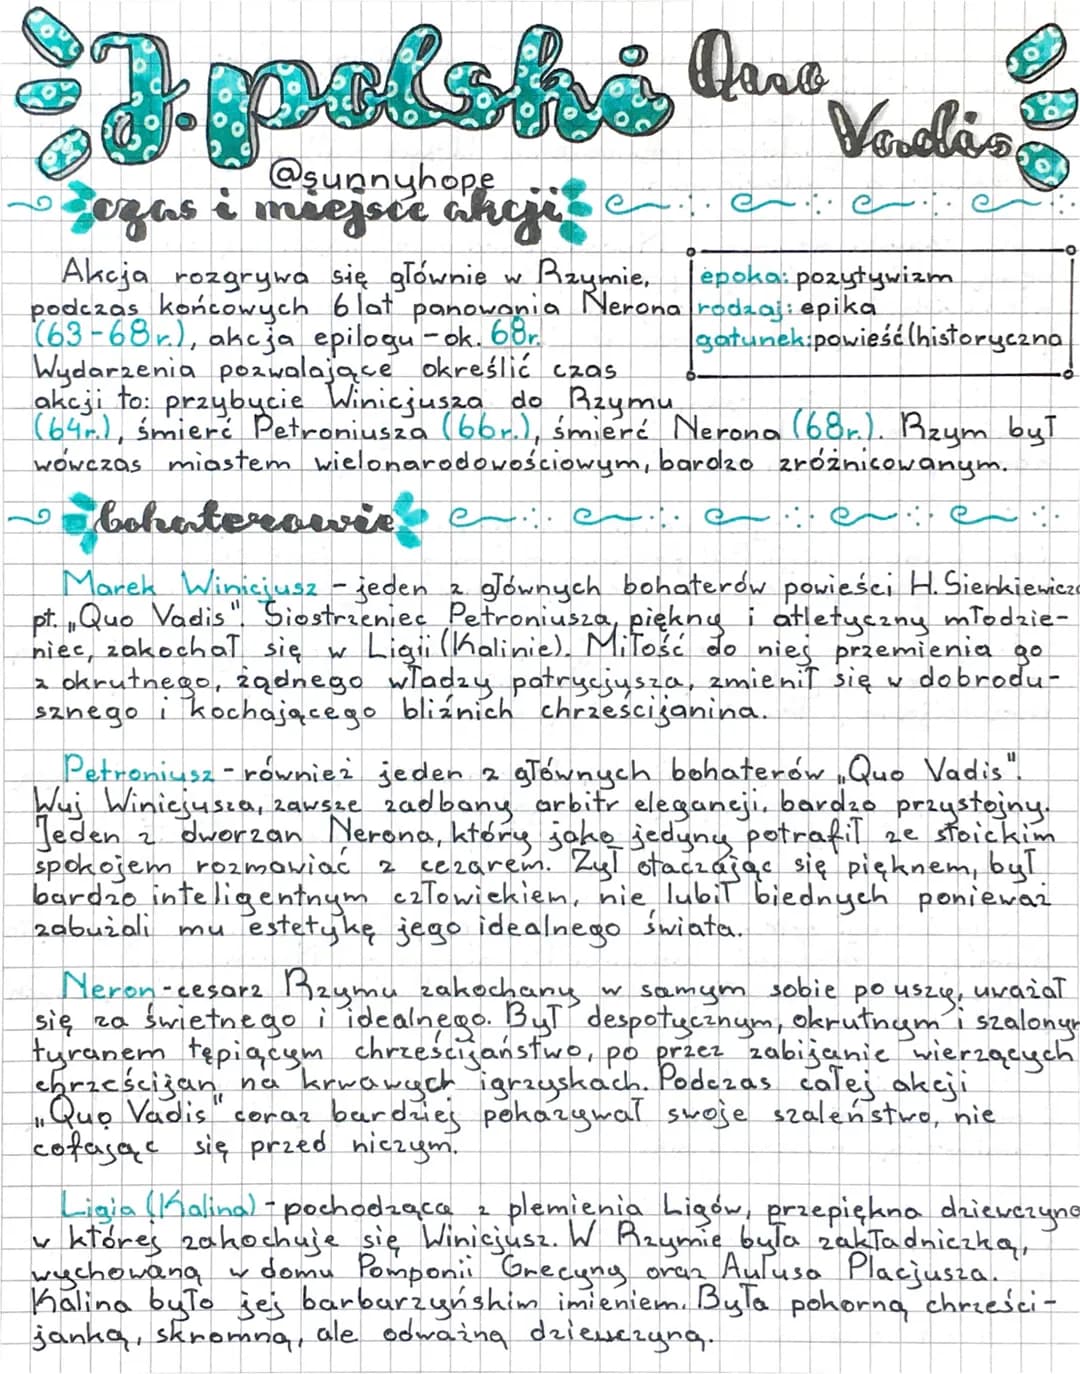 J. polski Quo
Vadis
@sunnyhope
czas i miejsce akcji
Akcja rozgrywa się głównie w Rzymie,
podczas końcowych 6 lat panowania Nerona
(63-68r.), akcja epilogu - ok. 68r.
Wydarzenia pozwalające określić czas
akcji to: przybycie Winicjusza do Rzymu
(64r.), śmierć Petroniusza (66r.), śmierć Nerona (68r.). Rzym był
wówczas miastem wielonarodowościowym, bardzo zróżnicowanym.
epoka: pozytywizm
rodzaj: epika
gatunek: powieść (historyczna
bohaterowie
Marek Winicjusz - jeden z głównych bohaterów powieści H. Sienkiewicza
pt. „Quo Vadis". Siostrzeniec Petroniusza, piękny i atletyczny młodzie-
niec, zakochał się w Ligii (Kalinie). Miłość do niej przemienia go
z okrutnego, żądnego władzy patrycjusza, zmienił się w dobrodu-
sznego i kochającego bliźnich chrześcijanina.
Petroniusz - również jeden z głównych bohaterów „Quo Vadis".
Wuj Winicjusza, zawsze zadbany arbitr elegancji, bardzo przystojny.
Jeden z dworzan Nerona, który jako jedyny potrafił ze stoickim
spokojem rozmawiać z cezarem. Żył otaczając się pięknem, był
bardzo inteligentnym człowiekiem, nie lubił biednych ponieważ
zabużali mu estetykę jego idealnego świata.
Neron - cesarz Rzymu zakochany w samym sobie po uszy, uważał
się za świetnego i idealnego. Był despotycznym, okrutnym i szalonym
tyranem tępiącym chrześcijaństwo, po przez zabijanie wierzących
chrześcijan na krwawych igrzyskach. Podczas całej akcji
„Quo Vadis" coraz bardziej pokazywał swoje szaleństwo, nie
cofając się przed niczym.
Ligia (Kalina) - pochodząca z plemienia Ligów, przepiękna dziewczyna
w której zakochuje się Winicjusz. W Rzymie była zakładniczką,
wychowaną w domu Pomponii Grecyny oraz Aulusa Placjusza.
Kalina było jej barbarzyńskim imieniem. Była pokorną chrześci-
janką, skromną, ale odważną dziewczyną.